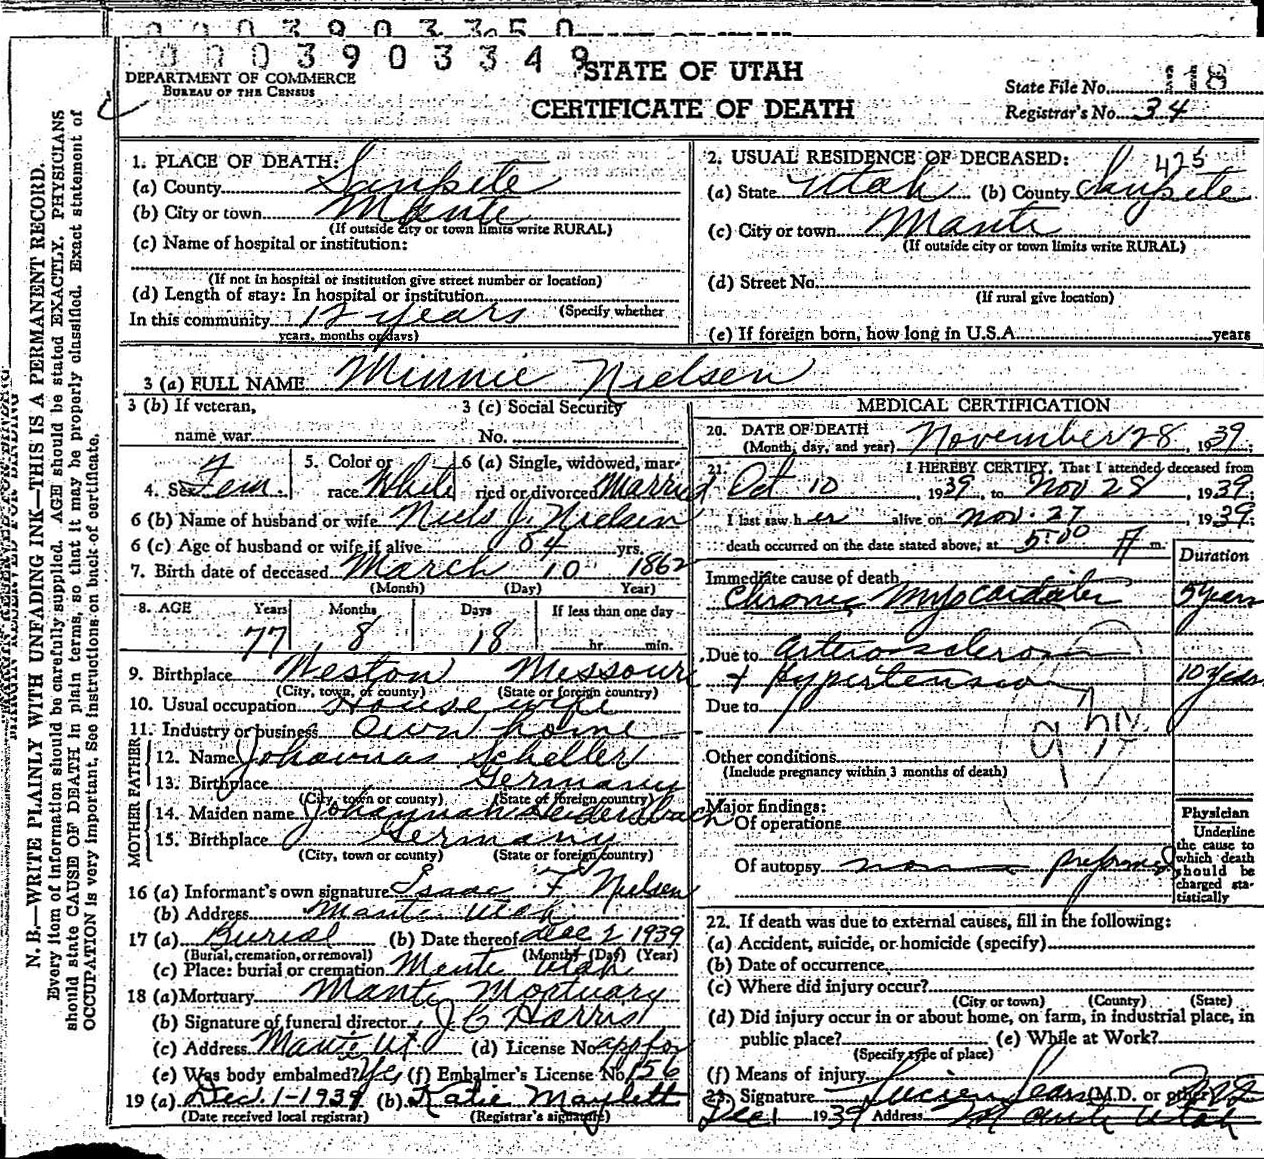 0003903349
STATE OF UTAH
CERTIFICATE OF DEATH
DEPARTMENT OF COMMERCE
BUREAU OF THE CENSUS
State File No. 118
Registrar's No. 34
N. B.—WRITE PLAINLY WITH UNFADING INK—THIS IS A PERMANENT RECORD.
Every item of information should be carefully supplied. AGE should be stated EXACTLY. PHYSICIANS
should state CAUSE OF DEATH in plain terms, so that it may be properly classified. Exact statement of
OCCUPATION is very important. See instructions on back of certificate.
1. PLACE OF DEATH:
(a) County Sanpete
(b) City or town Manti
(If outside city or town limits write RURAL)
(c) Name of hospital or institution:
(If not in hospital or institution give street number or location)
(d) Length of stay: In hospital or institution
(Specify whether
In this community 12 years
years, months or days)
2. USUAL RESIDENCE OF DECEASED: 425
(a) State Utah (b) County Sanpete
(c) City or town Manti
(If outside city or town limits write RURAL)
(d) Street No.
(If rural give location)
(e) If foreign born, how long in U.S.A. years
3 (a) FULL NAME Minnie Nielsen
3 (b) If veteran,
name war
3 (c) Social Security
No.
4. Sex Fem.
5. Color or
race White
6 (a) Single, widowed, mar-
ried or divorced Married
6 (b) Name of husband or wife Niels J. Nielsen
6 (c) Age of husband or wife if alive 84 yrs.
7. Birth date of deceased March 10 1862
(Month) (Day) Year)
8. AGE Years Months Days If less than one day
77 8 18 hr. min.
9. Birthplace Weston Messouri
(City, town, or county) (State or foreign country)
10. Usual occupation House wife
11. Industry or business Own home
FATHER
12. Name Johannas Scheller
13. Birthplace Germany
(City, town or county) (State or foreign country)
MOTHER
14. Maiden name Johannah Heidersbach
15. Birthplace Germany
(City, town or county) (State or foreign country)
16 (a) Informant's own signature Isaac F Nielsen
(b) Address Manti Utah
17 (a) Burial (b) Date thereof Dec 2 1939
(Burial, cremation, or removal) (Month) (Day) (Year)
(c) Place: burial or cremation Manti Utah
18 (a) Mortuary Manti Mortuary
(b) Signature of funeral director J C Harris
(c) Address Manti, Ut (d) License No. app for
(e) Was body embalmed? Yes (f) Embalmer's License No. 156
19 (a) Dec 1-1939 (b) Katie Maylett
(Date received local registrar) (Registrar's signature)
MEDICAL CERTIFICATION
20. DATE OF DEATH
(Month, day, and year) November 28, 1939;
21. I HEREBY CERTIFY, That I attended deceased from
Oct 10, 1939, to Nov 28, 1939;
I last saw her alive on Nov. 27, 1939;
death occurred on the date stated above, at 5:00 A m.
Duration
Immediate cause of death
Chronic Myocarditis 5 years
Due to Arteriosclerosis
+ Hypertension 10 years
Due to
Other conditions
(Include pregnancy within 3 months of death)
Major findings:
Of operations
Of autopsy none preformed
Physician
Underline
the cause to
which death
should be
charged sta-
tistically
22. If death was due to external causes, fill in the following:
(a) Accident, suicide, or homicide (specify)
(b) Date of occurrence
(c) Where did injury occur?
(City or town) (County) (State)
(d) Did injury occur in or about home, on farm, in industrial place, in
public place? (e) While at Work?
(Specify type of place)
(f) Means of injury
23. Signature Lucien Sears (M.D. or other)
Dec 1 1939 Address Manti Utah